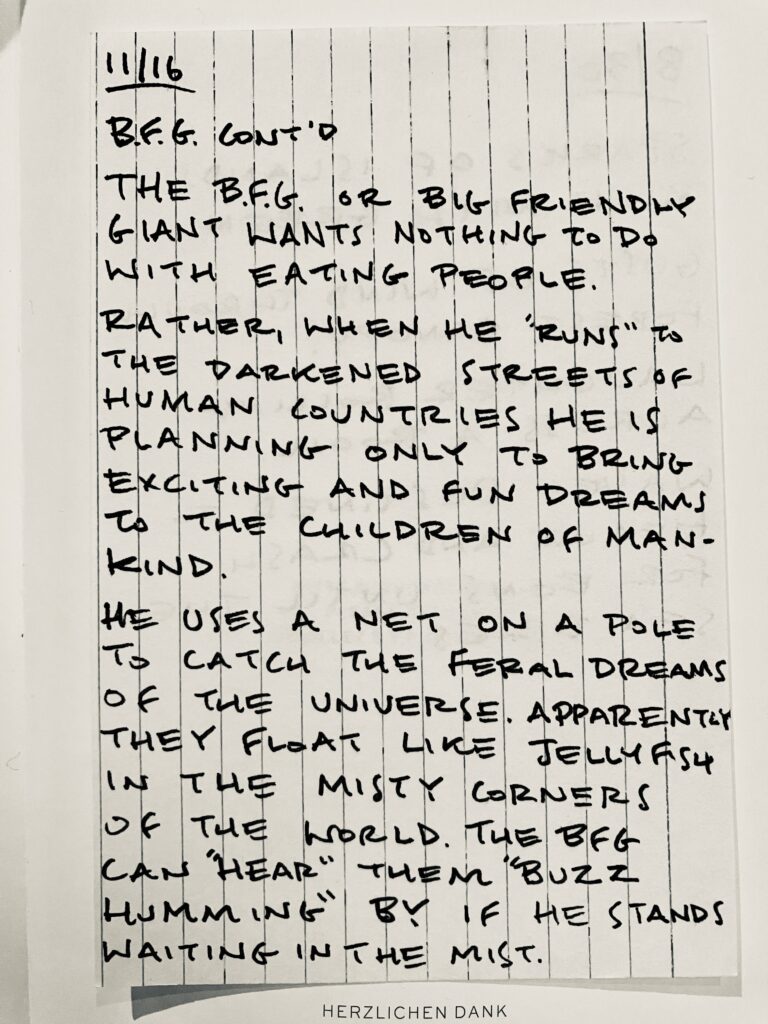 11/16
B.F.G. CONT'D
THE B.F.G. OR BIG FRIENDLY
GIANT WANTS NOTHING TO DO
WITH EATING PEOPLE.
RATHER, WHEN HE "RUNS" TO
THE DARKENED STREETS OF
HUMAN COUNTRIES HE IS
PLANNING ONLY TO BRING
EXCITING AND FUN DREAMS
TO THE CHILDREN OF MAN-
KIND.
HE USES A NET ON A POLE
TO CATCH THE FERAL DREAMS
OF THE UNIVERSE. APPARENTLY
THEY FLOAT LIKE JELLYFISH
IN THE MISTY CORNERS
OF THE WORLD. THE BFG
CAN "HEAR" THEM "BUZZ
HUMMING" BY IF HE STANDS
WAITING IN THE MIST.
HERZLICHEN DANK